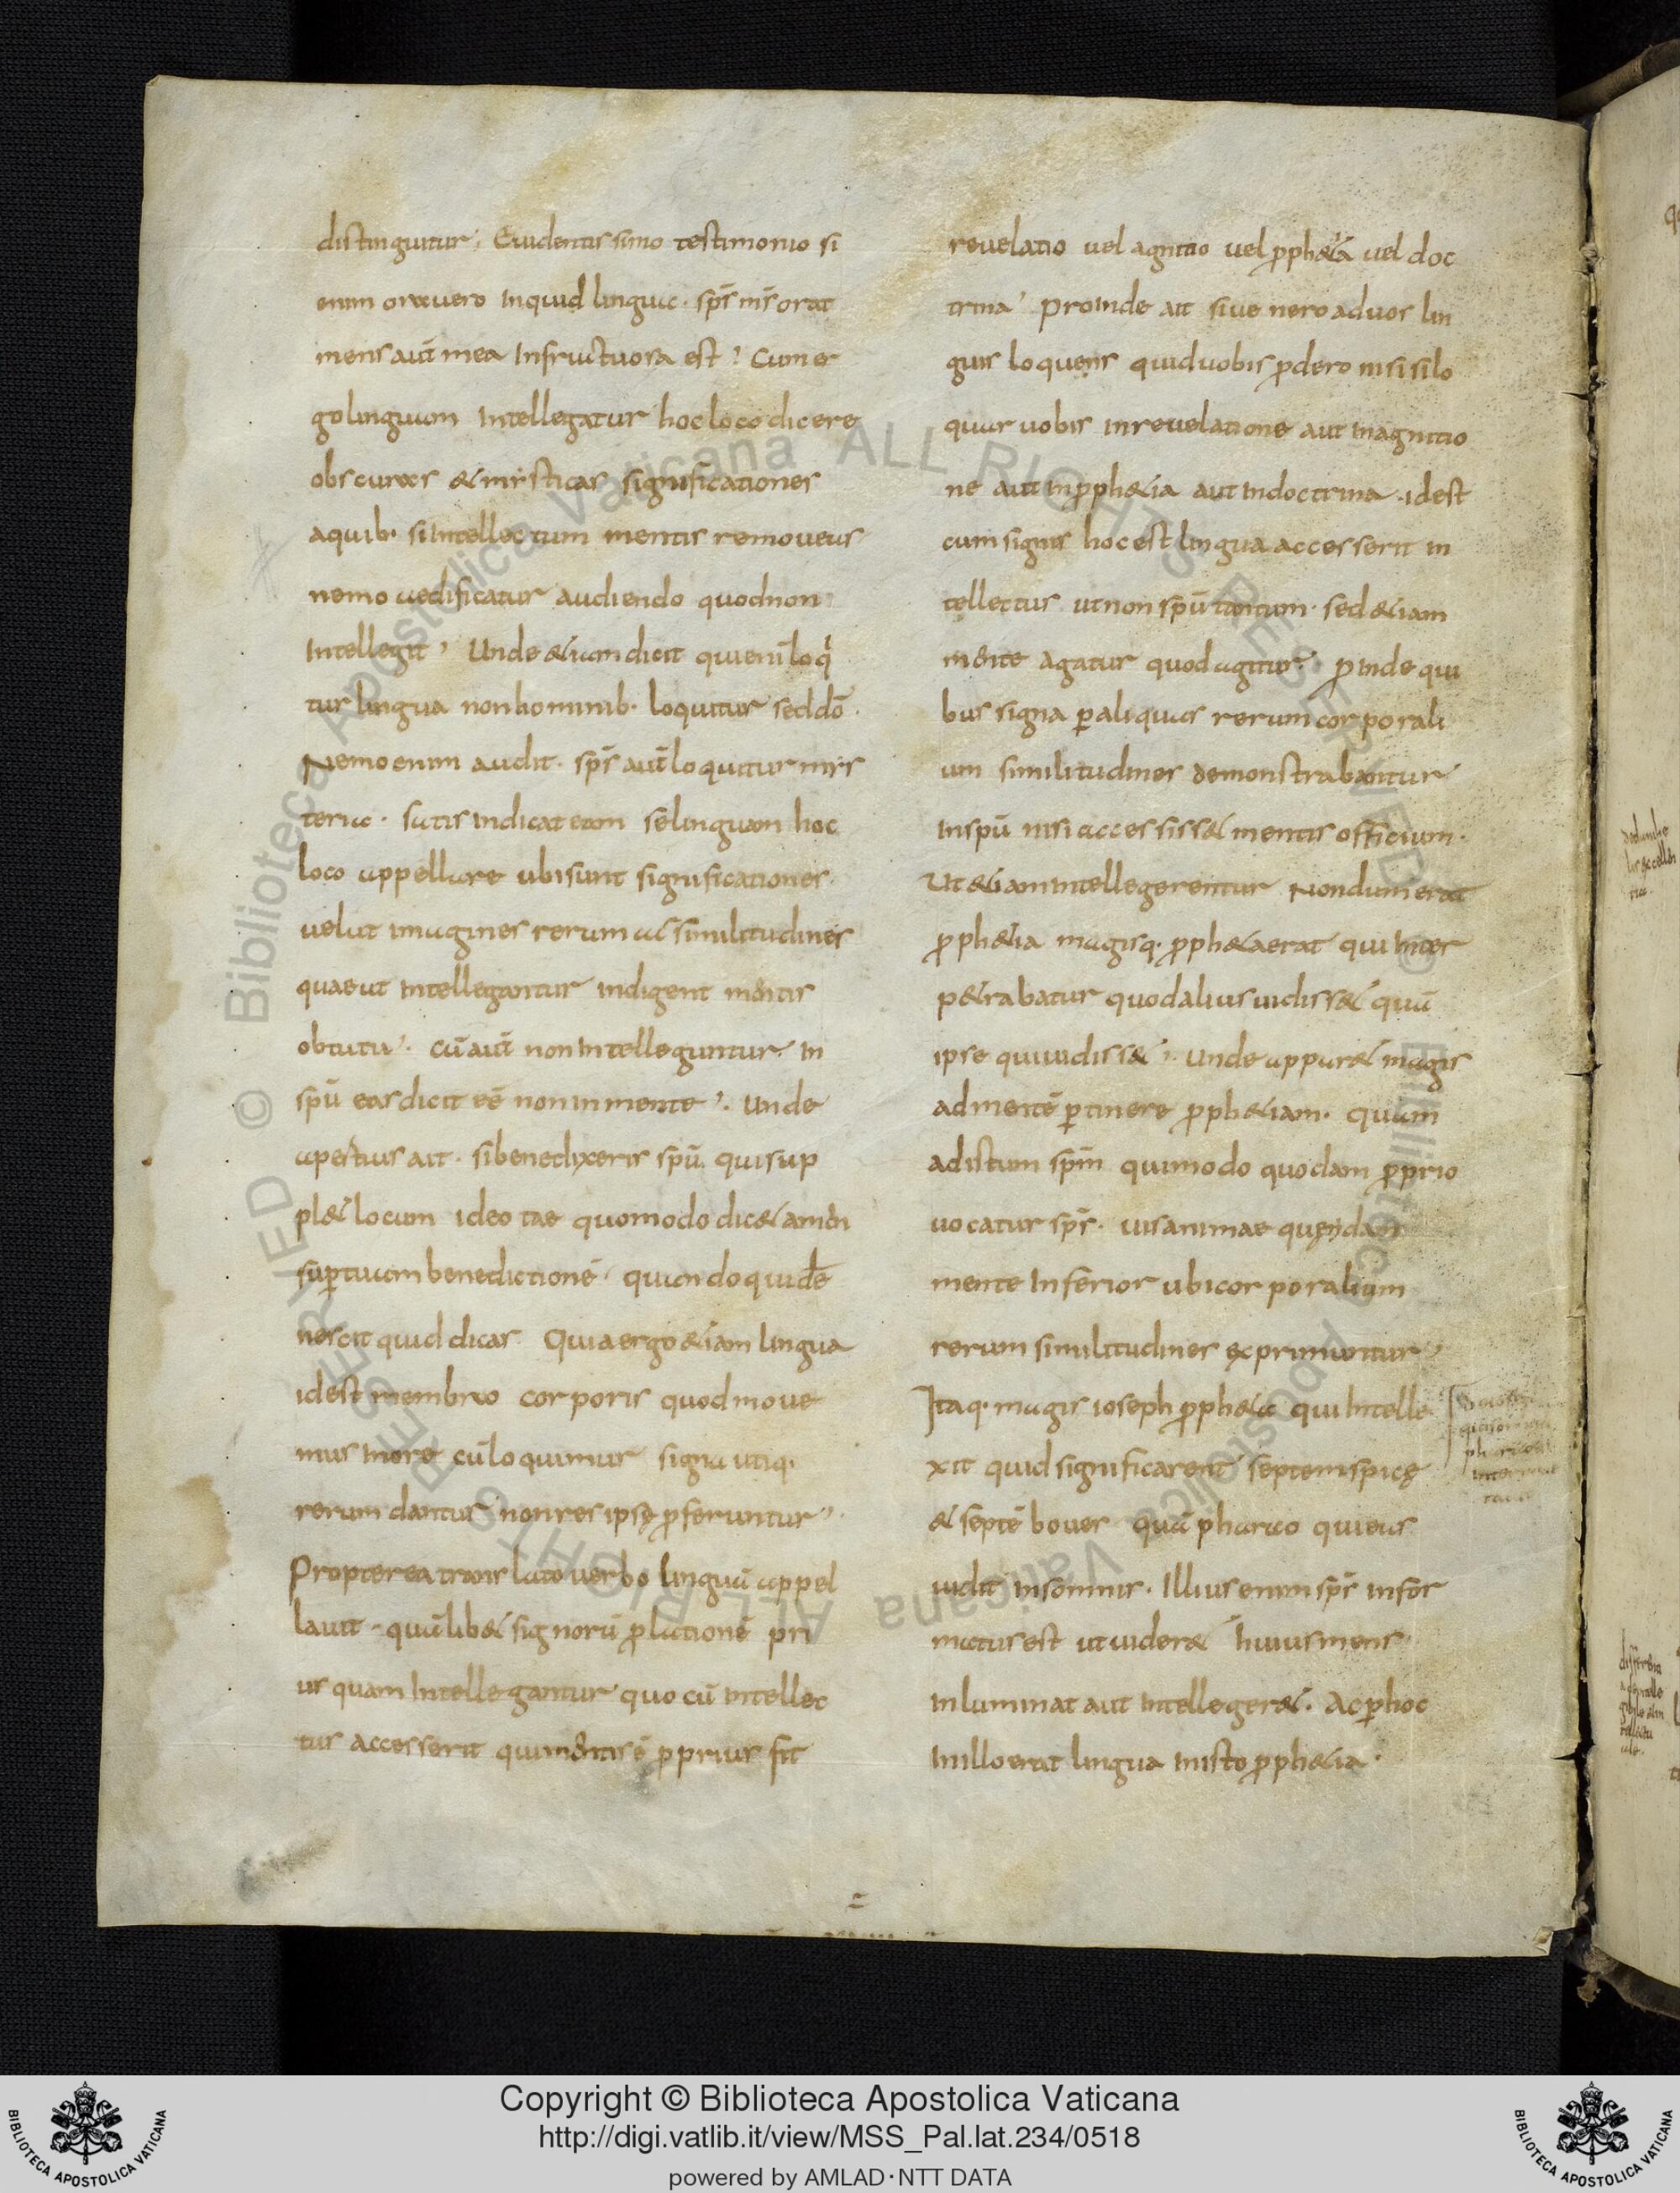 distinguitur. Euidentissimo testimonio si
enim orauero inquid lingua · sp̄s m̄s orat
mens aut̄ mea Infructuosa est? Cum er
go linguam Intellegatur hoc loco dicere
obscuras & mysticas significationes
aquib· si Intellectum mentis remoueas
nemo aedificatur audiendo quod non
Intellegit? Unde & iam dicit qui eni loq
tur lingua non hominib· loquitur sed dō ·
Nemo enim audit · sp̄s aut̄ loquitur mys
teria · satis indicat eam se linguam hoc
loco appellare ubi sunt significationes
uelut imagines rerum ac similitudines
quae ut Intellegantur indigent m̄tis
obtutu · Cū aut̄ non Intelleguntur In
spū eas dicit eē non in mente · Unde
apertius ait · si benedixeris spū qui sup
pl& locum ideotae quomodo dic& amen
sup tuam benedictionē · quando quidē
nescit quid dicas Quia ergo & iam lingua
id est membro corporis quod moue
mus in ore cū loquimur signa utiq·
rerum dantur non res ipsę pferuntur
Propterea translato uerbo linguā appel
lauit · quālib& signorū plationē pri
us quam Intellegantur quo cū intellec
tus accesserit qui mentis ē pprius fit
reuelatio uel agnitio uel pph&ia uel doc
trina Proinde ait siue nero ad uos lin
guis loquens quid uobis pdero nisi si lo
quar uobis in reuelatione aut in agnitio
ne aut in pph&ia aut in doctrina · id est
cum signis hoc est lingua accesserit in
tellectus ut non spū tantum · sed & iam
mente agatur quod agitur · pinde qui
bus signa p aliquas rerum corporali
um similitudines demonstrabantur
In spū nisi accessiss& mentis officium ·
Ut & iam Intellegerentur Nondum erat
pph&ia magisq· pph&a erat qui Inter
p&rabatur quod alius uidiss& quā
ipse qui uidiss& · unde appar& magis
ad mentē ptinere pph&iam · quam
ad istum spm̄ qui modo quodam pprio
uocatur sp̄s · uis animae quędam
mente Inferior ubi corporalium
rerum similitudines exprimuntur
Itaq· magis ioseph pph&a qui Intelle
xit quid significarent septem spicę
& septē boues quā pharao qui eas
uidit in somnis · Illius enim sp̄s infor
matus est ut uider& huius mens
inluminat aut intelleger& · Ac p hoc
In illo erat lingua In isto pph&ia ·
Copyright © Biblioteca Apostolica Vaticana
http://digi.vatlib.it/view/MSS_Pal.lat.234/0518
powered by AMLAD·NTT DATA
BIBLIOTECA APOSTOLICA VATICANA
BIBLIOTECA APOSTOLICA VATICANA